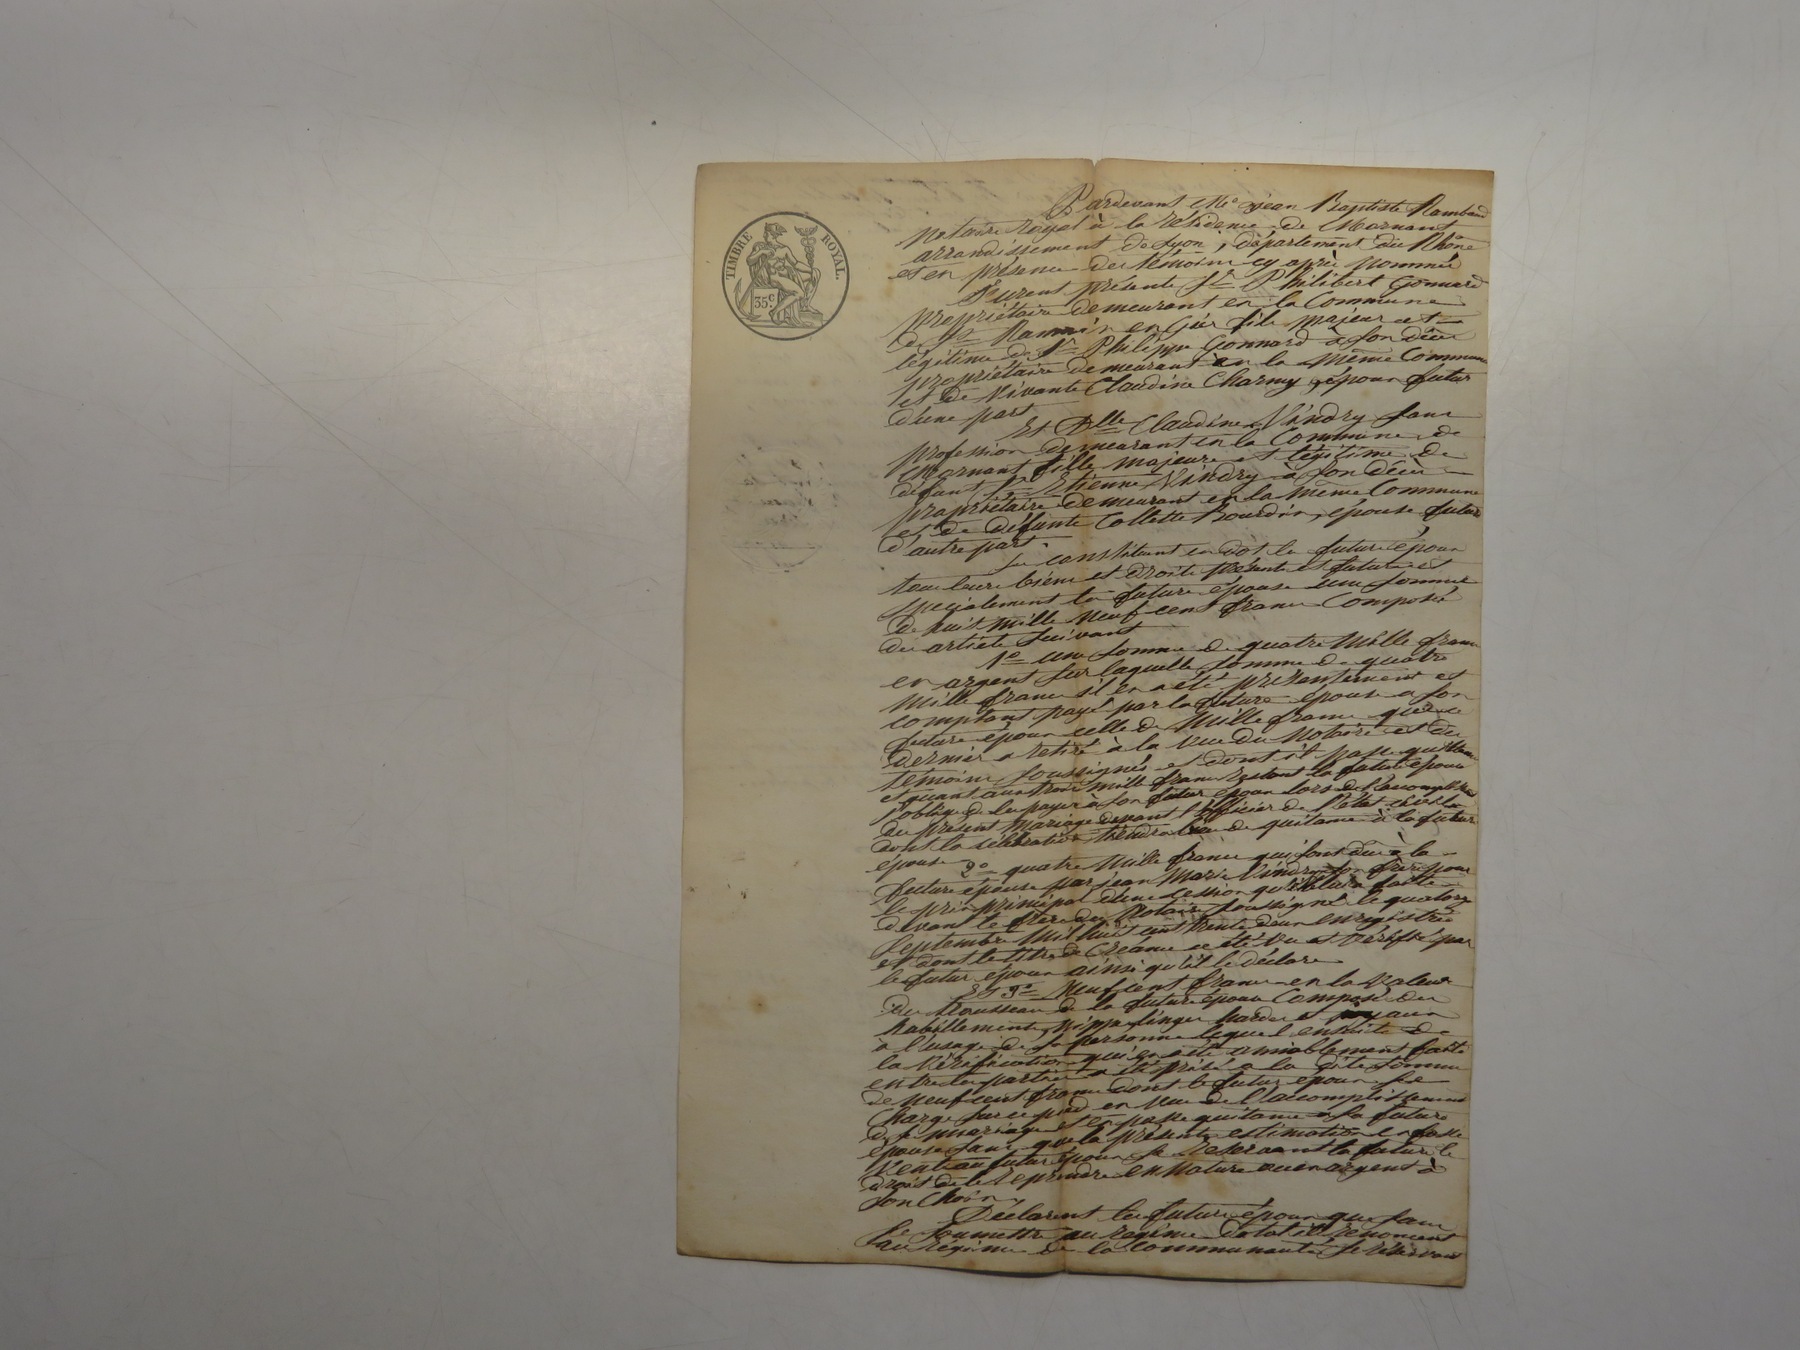 TIMBRE ROYAL.
35c.
Pardevant Me jean Baptiste Rambaud
notaire royal à la résidence de Mornant
arrondissement de Lyon, département du Rhône
et en présence des témoins cy après nommés
furent présents Sr Philibert Gonnard
propriétaire demeurant en la Commune
de St en Gier fils majeur et
légitime de Sr Philippe Gonnard à son décès
propriétaire demeurant en la même Commune
et de vivante Claudine Charmy, époux futur
d'une part
Et Dlle Claudine Vindry sans
profession demeurant en la Commune de
Mornant fille majeure et légitime de
défunt Sr Etienne Vindry à son décès
propriétaire demeurant en la même Commune
et de défunte Collette Bourdin, epouse future
d'autre part
Se constituent en dot les futurs époux
tous leurs biens et droits présents et futurs et
spécialement la future épouse une somme
de huit mille neuf cents francs Composée
des articles suivants
1o une somme de quatre mille francs
en argent sur laquelle somme de quatre
mille francs il en a été présentement et
comptant payé par la future épouse a son
futur époux celle de mille francs que ce
dernier a retiré à la vue du Notaire et des
temoins soussignés et dont il passe quittance
et quant aux trois mille francs restant la future épouse
s'oblige de les payer à son futur époux lors de
du présent mariage devant l'officier de l'état civil
dont la célébration tiendra lieu de quitance à la future
épouse
2o quatre mille francs qui sont dus à la
future épouse par jean Marie Vindry son frère pour
le prix principal d'une cession qu'elle lui a faite
devant le frère du Notaire soussigné le quatorze
Septembre mil huit cent trente deux enregistré
et dont le titre de Créance a été vu et vérifié par
le futur époux ainsi qu'il le déclare
Et 3o neuf cents francs en la valeur
du trousseau de la future épouse Composé des
habillements, nippes linges hardes et joyaux
à l'usage de sa personne lequel ensuite de
la vérification qui en a été amiablement faite
entre les parties a été la dite somme
de neuf cents francs dont le futur époux se
charge sur ce pied en vue de l'accomplissement
de mariage et en passe quitance à sa future
épouse sans que la présente estimation en fasse
vente au futur époux se réservant la future le
droit de le reprendre en nature ou en argent à
son Choix
Déclarent les futurs époux que sans
se soumettre au régime dotal ils renoncent
au régime de la Communauté se réservant